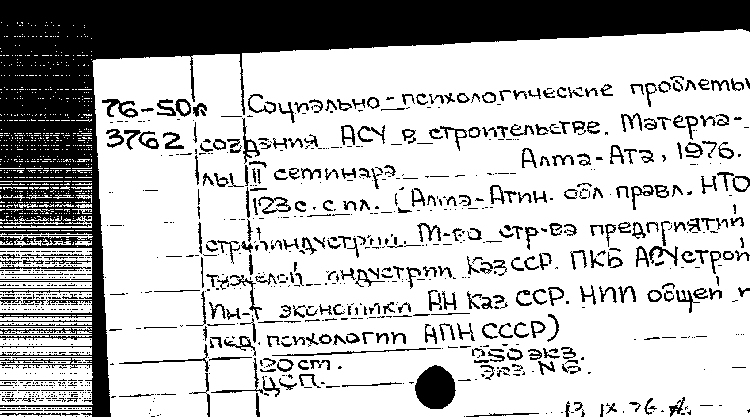 76-50л Социально-психологические проблемы
3762 создания АСУ в строительстве. Материа-
лы II семинара Алма-Ата, 1976.
123с. с ил. (Алма-Атин. обл правл. НТО
стройиндустрии. М-во стр-ва предприятий
тяжелой индустрии КазССР. ПКБ АСУстрой
Ин-т экономики АН Каз ССР. НИИ общей и
пед. психологии АПН СССР)
20см. 250 экз.
ДСП. Экз. №
13 IX.76.